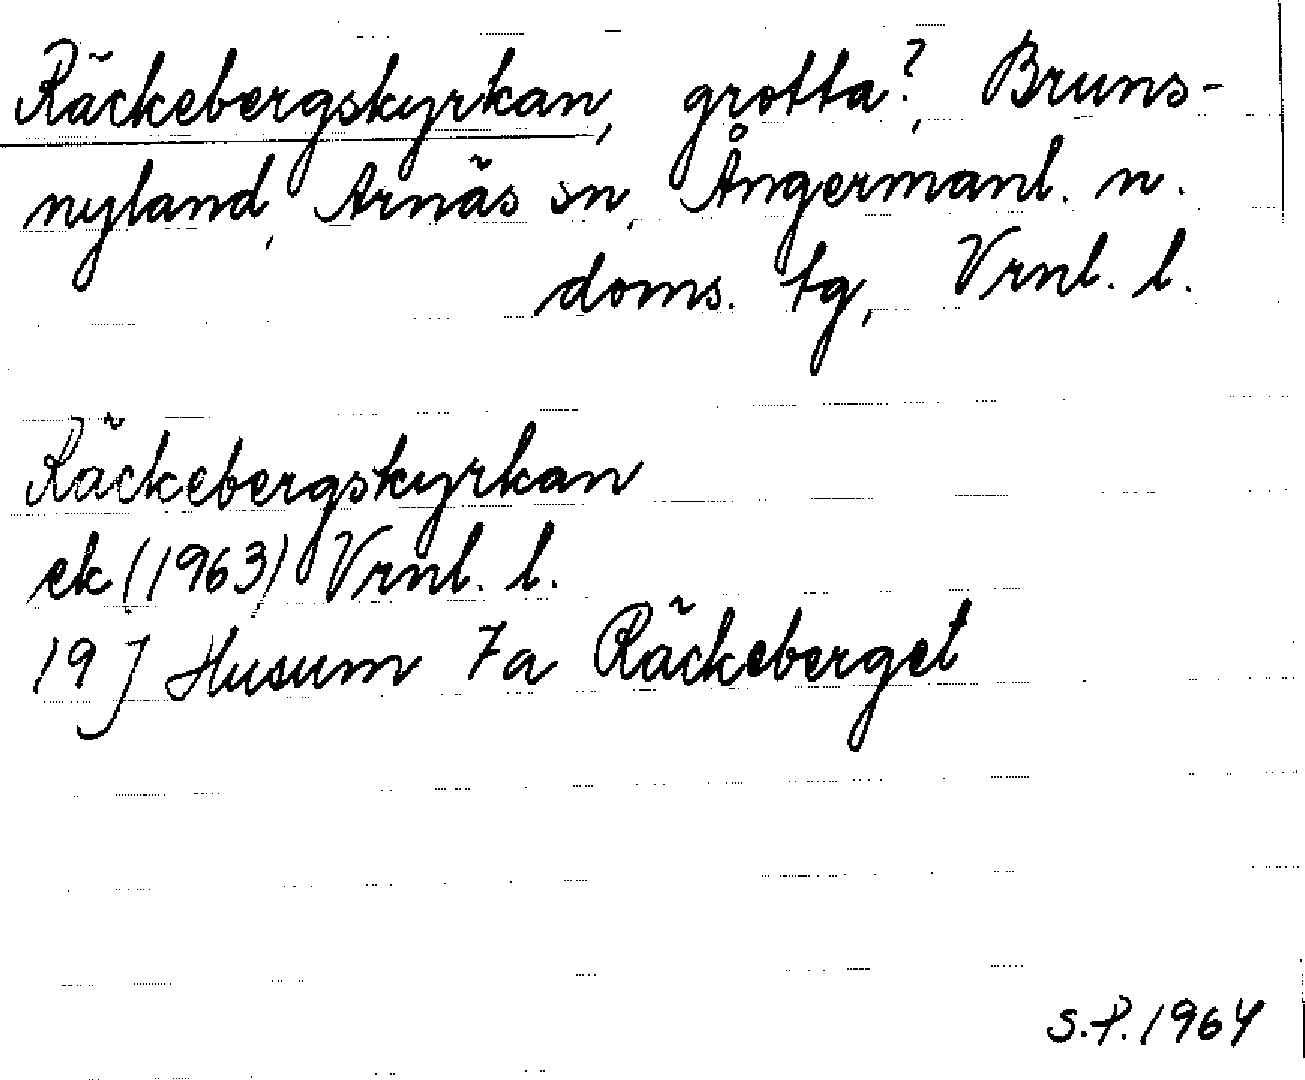 Räckebergskyrkan, grotta?, Bruns-
nyland, Arnäs sn, Ångermanl. n.
doms. tg, Vrnl. l.
Räckebergskyrkan
ek (1963) Vrnl. l.
19 J Husum 7a Räckeberget
S.P. 1964